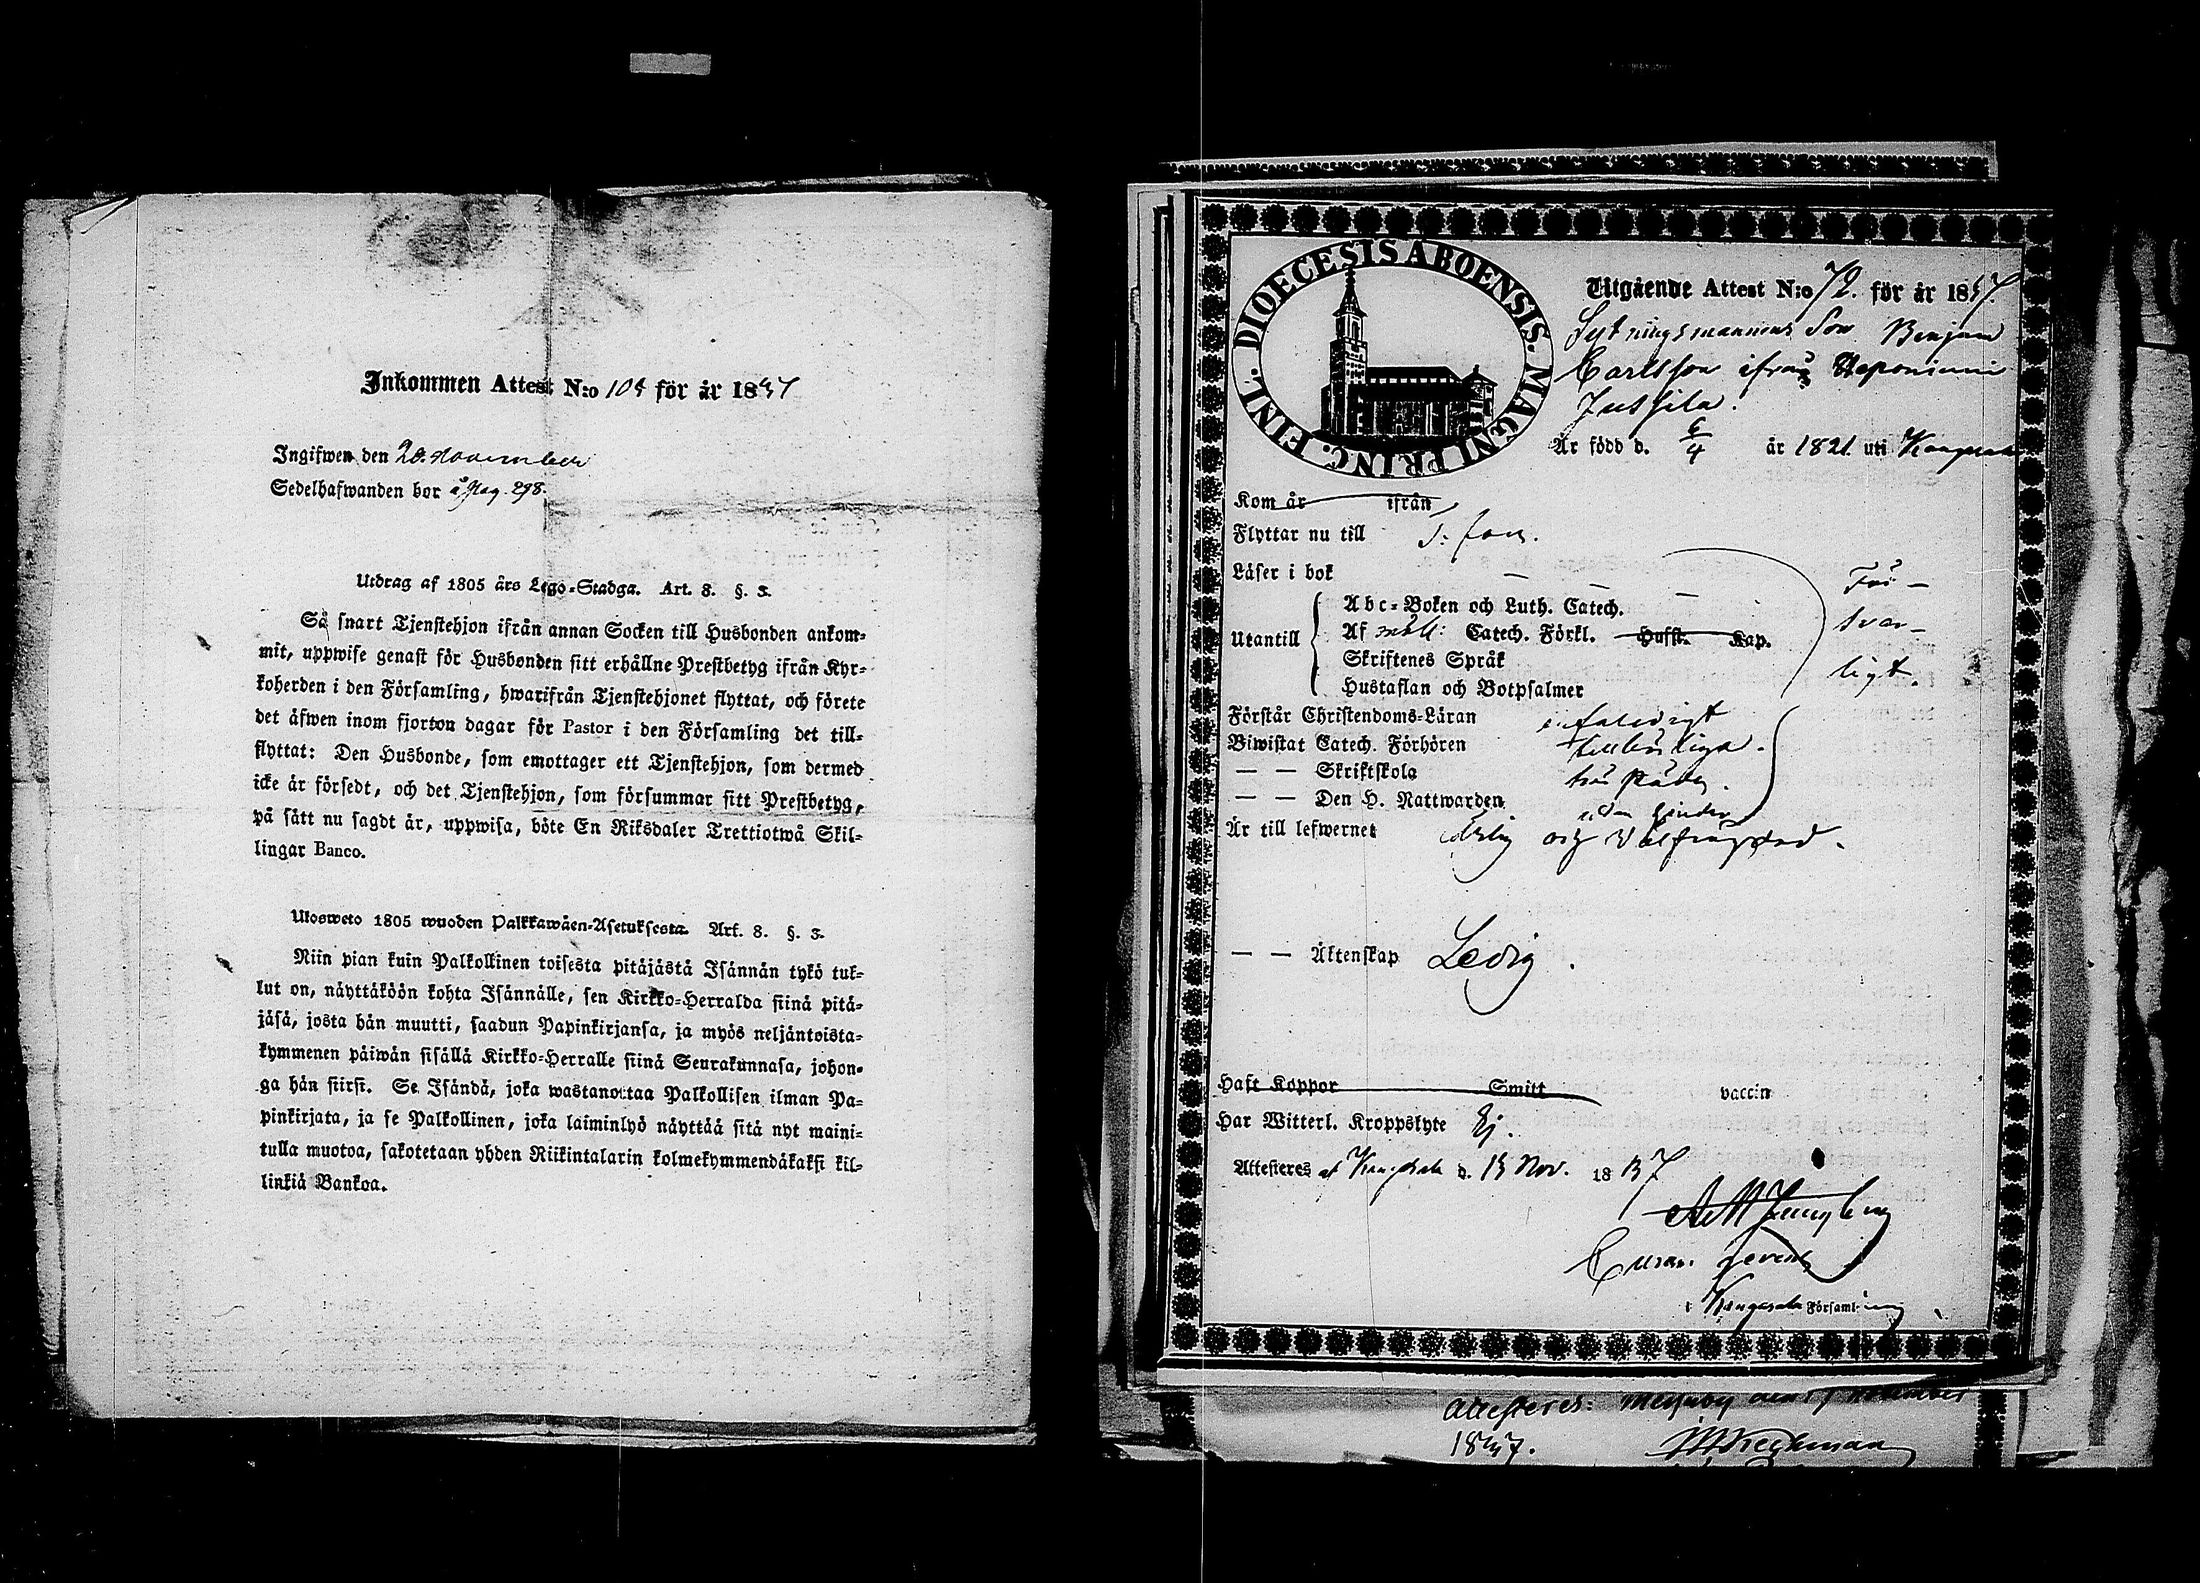 Inkommen Attest N:o 104 för år 1847
Ingifwen den 20. November
Sedelhafwanden bor å Pag. 298.
Utdrag af 1805 års Lego-Stadga. Art. 8. §. 3.
Så snart Tjenstehjon ifrån annan Socken till Husbonden ankom-
mit, uppwise genast för Husbonden sitt erhållne Prestbetyg ifrån Kyr-
koherden i den Församling, hwarifrån Tjenstehjonet flyttat, och förete
det äfwen inom fjorton dagar för Pastor i den Församling det till-
flyttat: Den Husbonde, som emottager ett Tjenstehjon, som dermed
icke är försedt, och det Tjenstehjon, som försummar sitt Prestbetyg,
på sätt nu sagdt är, uppwisa, böte En Riksdaler Trettiotwå Skil-
lingar Banco.
Ulosweto 1805 wuoden Palkkawäen-Asetuksesta. Art. 8. §. 3.
Niin pian kuin Palkollinen toisesta pitäjästä Isännän tykö tul-
lut on, näyttäköön kohta Isännälle, sen Kirkko-Herralda siinä pitä-
jäsä, josta hän muutti, saadun Papinkirjansa, ja myös neljäntoista-
kymmenen päiwän sisällä Kirkko-Herralle siinä Seurakunnasa, johon-
ga hän siirsi. Se Isändä, joka wastanottaa Palkollisen ilman Pa-
pinkirjata, ja se Palkollinen, joka laiminlyö näyttää sitä nyt maini-
tulla muotoa, sakotetaan yhden Riikintalarin kolmekymmendäkaksi kil-
linkiä Bankoa.
DIOECESIS ABOENSIS. MAGNI PRINC. FINL.
Utgående Attest N:o 72. för år 1847.
Sytningsmannens Son Benjam
Carlsson ifrån Haponiemi
Jussila.
Är född d. 6/4 år 1821. uti Kangasala
Kom år ifrån
Flyttar nu till T: fors.
Läser i bok
Abc-Boken och Luth. Catech.
Utantill Af Catech. Förkl. Hufst. Kap.
Skriftenes Språk
Hustaflan och Botpsalmer
För-
svar-
ligt.
Förstår Christendoms-Läran
Biwistat Catech. Förhören
— — Skriftskola
— — Den H. Nattwarden
Är till lefwernet ärlig och välfrägdad.
— — Äktenskap Ledig.
Haft Koppor Smitt vaccin
Har Witterl. Kroppslyte Ej.
Attesteras af Kangasala d. 15 Nov. 1847
i Kangasala Församling
Attesteres:
1847.